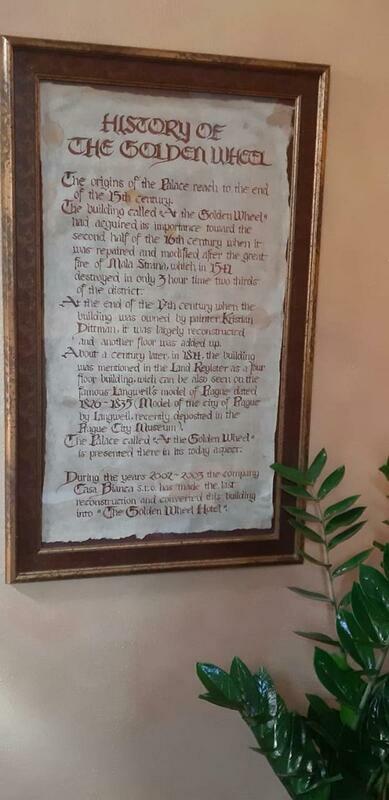 HISTORY OF
THE GOLDEN WHEEL
The origins of the Palace reach to the end
of the 15th century.
The building called "At the Golden Wheel"
had acquired its importance toward the
second half of the 16th century when it
was repaired and modified after the great
fire of Mala Strana, which in 1541
destroyed in only 3 hour time two thirds
of the district.
At the end of the 17th century when the
building was owned by painter Kristian
Dittman, it was largely reconstructed
and another floor was added up.
About a century later, in the building
was mentioned in the Land Register as a four
floor building, wich can be also seen on the
famous Langweil's model of Prague dated
1826-1835 (Model of the city of Prague
by Langweil, recently deposited in the
Prague City Museum).
The Palace called "At the Golden Wheel"
is presented there in its today aspect.
During the years 2002-2003 the company
Casa Blanca s.r.o. has made the last
reconstruction and converted this building
into "The Golden Wheel Hotel".